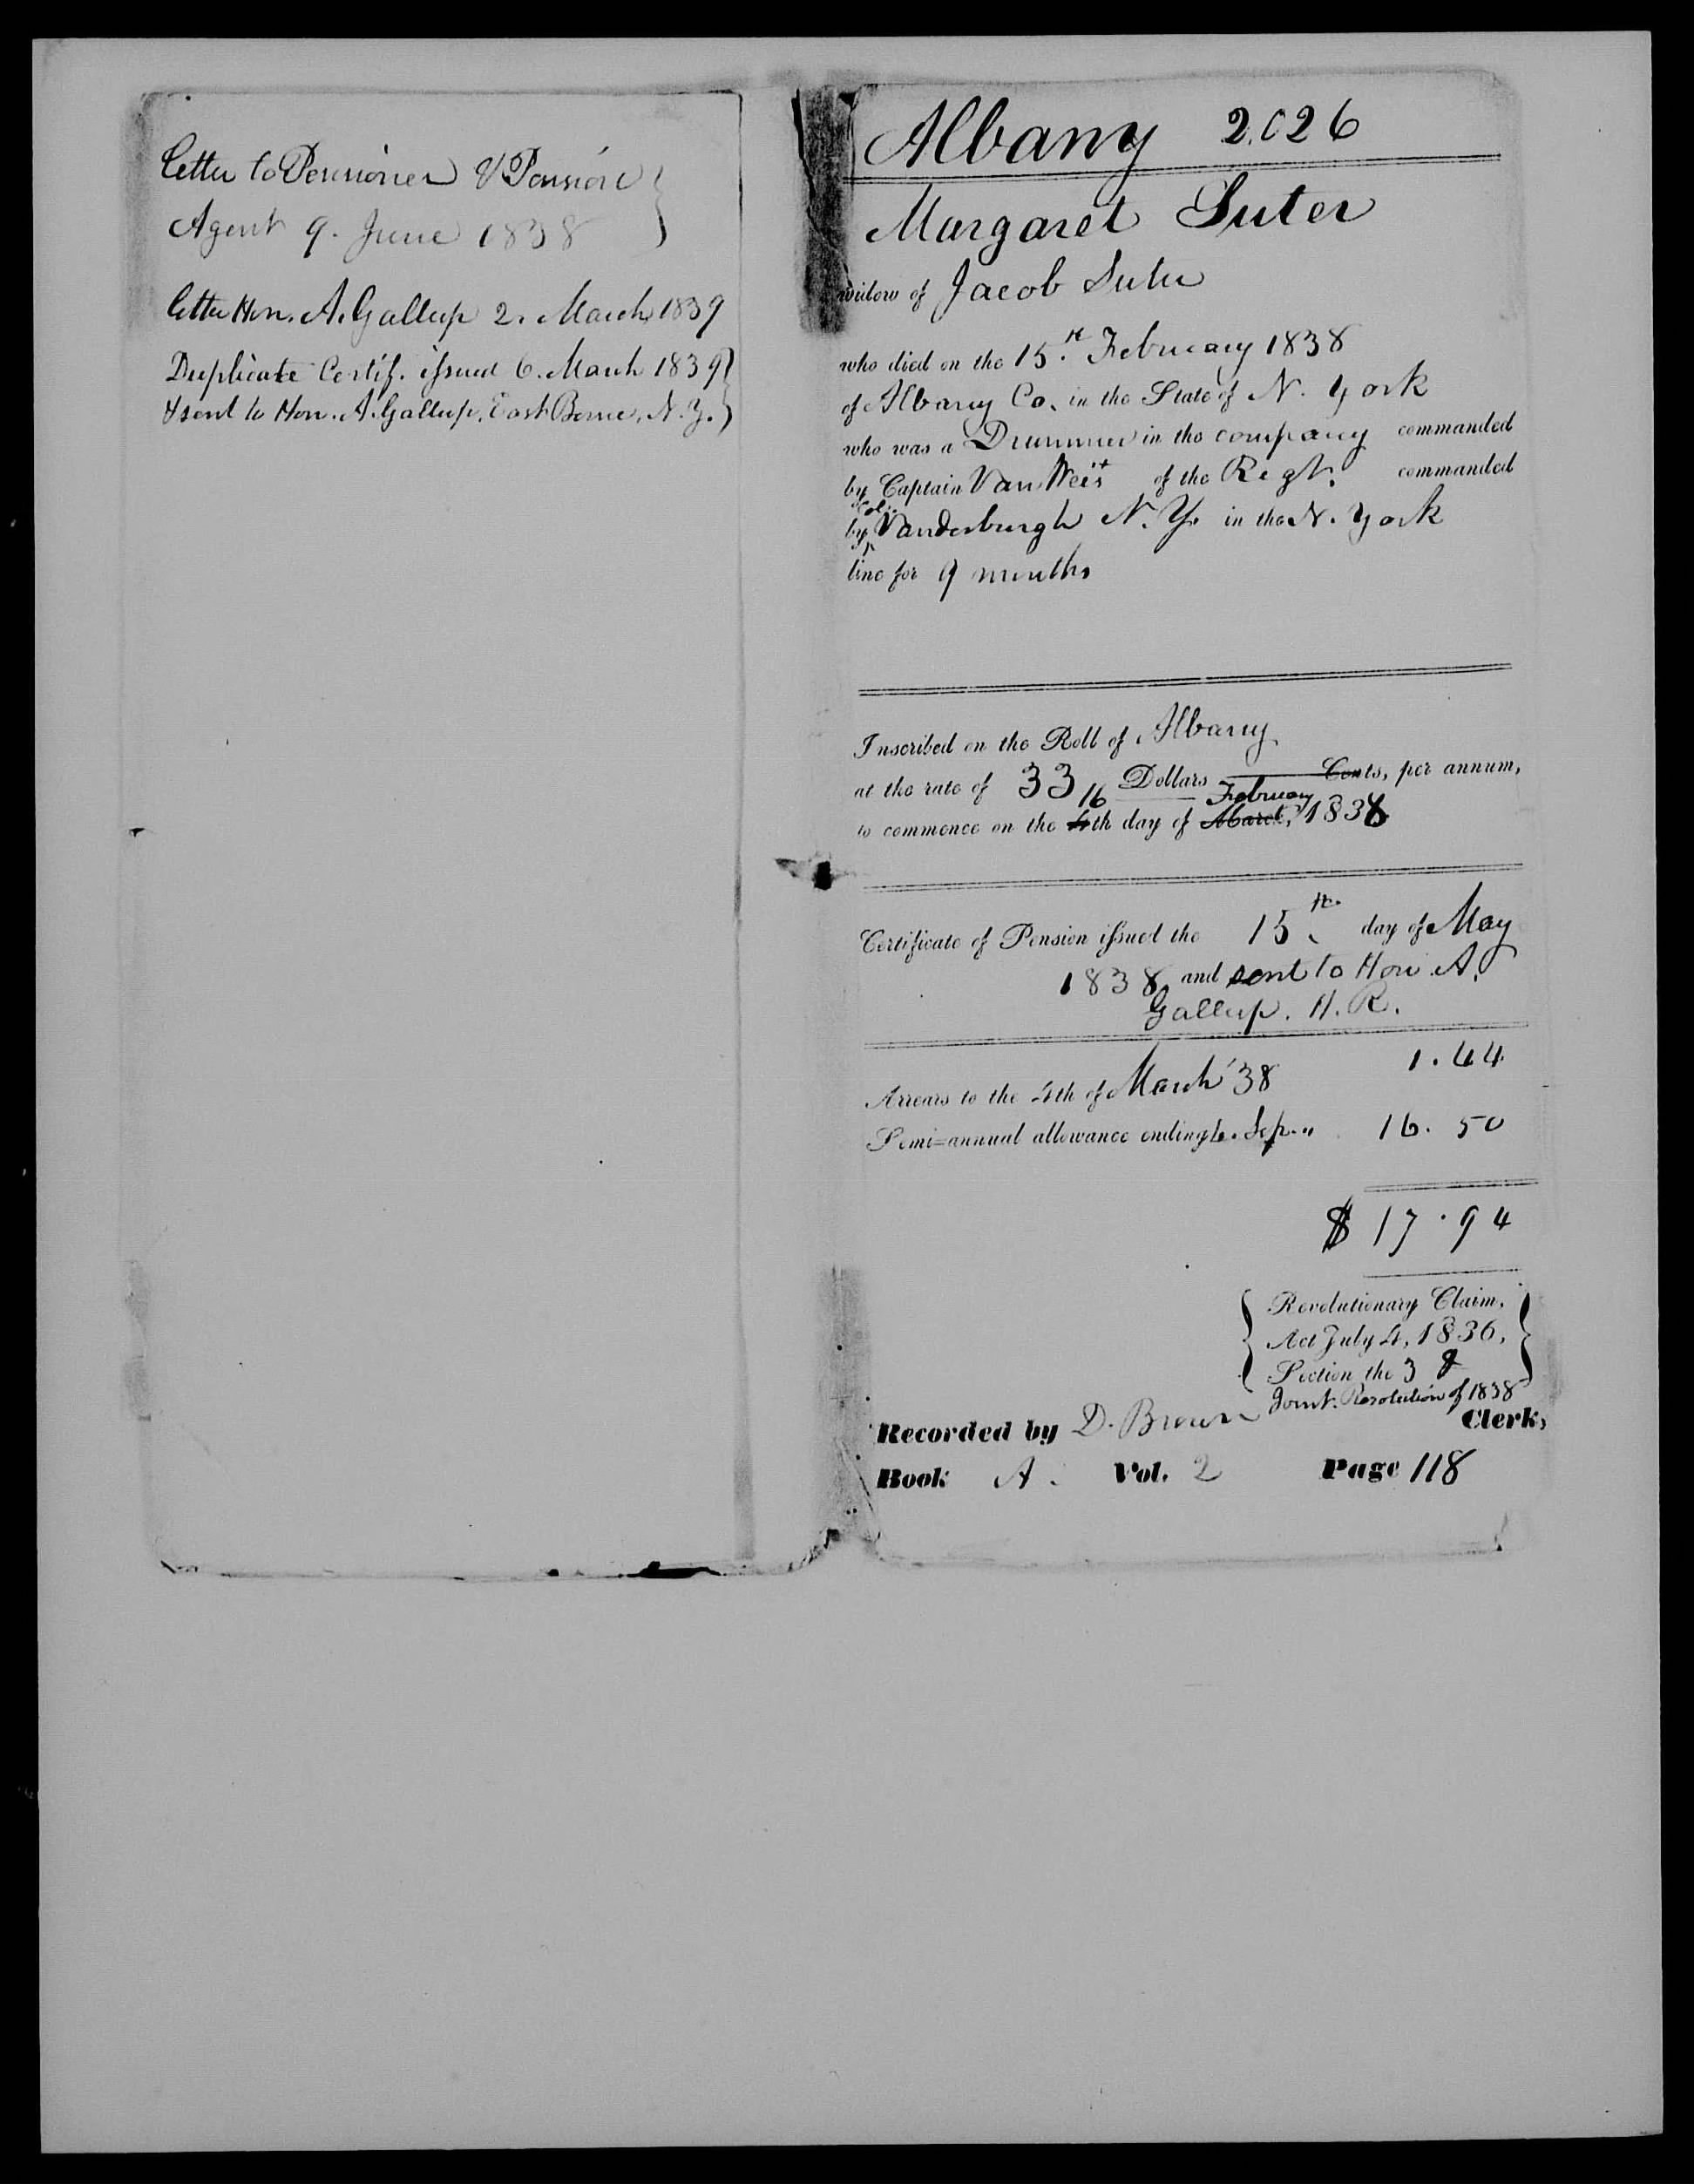 Letter to Pensioner & Pension
Agent 9. June 1838
letter Hon. A. Gallup 2. March 1839
Duplicate Certif. issued 6. March 1839
& sent to Hon. A. Gallup, East Berne, N.Y.
Albany 2.026
Margaret Suter
widow of Jacob Suter
who died on the 15.th February 1838
of Albany Co. in the State of N. York
who was a Drummer in the company commanded
by Captain Van Weist of the Regt. commanded
by Col. Vanderburgh N.Y. in the N. York
line for 9 months
Inscribed on the Roll of Albany
at the rate of 33 Dollars Cents, per annum,
February
to commence on the 16 4th day of March, 1838
Certificate of Pension issued the 15.th day of May
1838 and sent to Hon A.
Gallup. H. R.
Arrears to the 4th of March '38 1.44
Semi-annual allowance ending 4. Sep. " 16.50
$ 17.94
Revolutionary Claim,
Act July 4, 1836,
Section the 3 &
Joint. Resolution of 1838
Recorded by D. Brown Clerk,
Book A. Vol. 2 Page 118